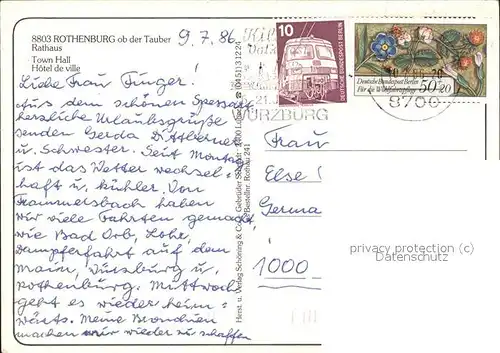 8803 ROTHENBURG ob der Tauber
Rathaus
Town Hall
Hôtel de ville
9.7.86
Liebe Frau Finger!
Aus dem schönen Spessart
herzliche Urlaubsgrüße
senden Gerda
u. Schwester. Seit Montag
ist das Wetter wechsel-
haft u. kühler. Von
Frammersbach haben
wir viele Fahrten gemacht
wie Bad Orb, Lohr,
Dampferfahrt auf dem
Main, Würzburg u.
Rothenburg. Mittwoch
geht es wieder heim-
wärts. Meine Bronchien
machen mir wieder zu schaffen
Herst. u. Verlag Schöning & Co + Gebrüder Schmidt
Bestellnr. Rothau 241
10
DEUTSCHE BUNDESPOST BERLIN
Deutsche Bundespost Berlin
Für die Wohlfahrtspflege
50+20
WÜRZBURG
8700
Frau
Else
Germa
1000
privacy protection (c)
Datenschutz